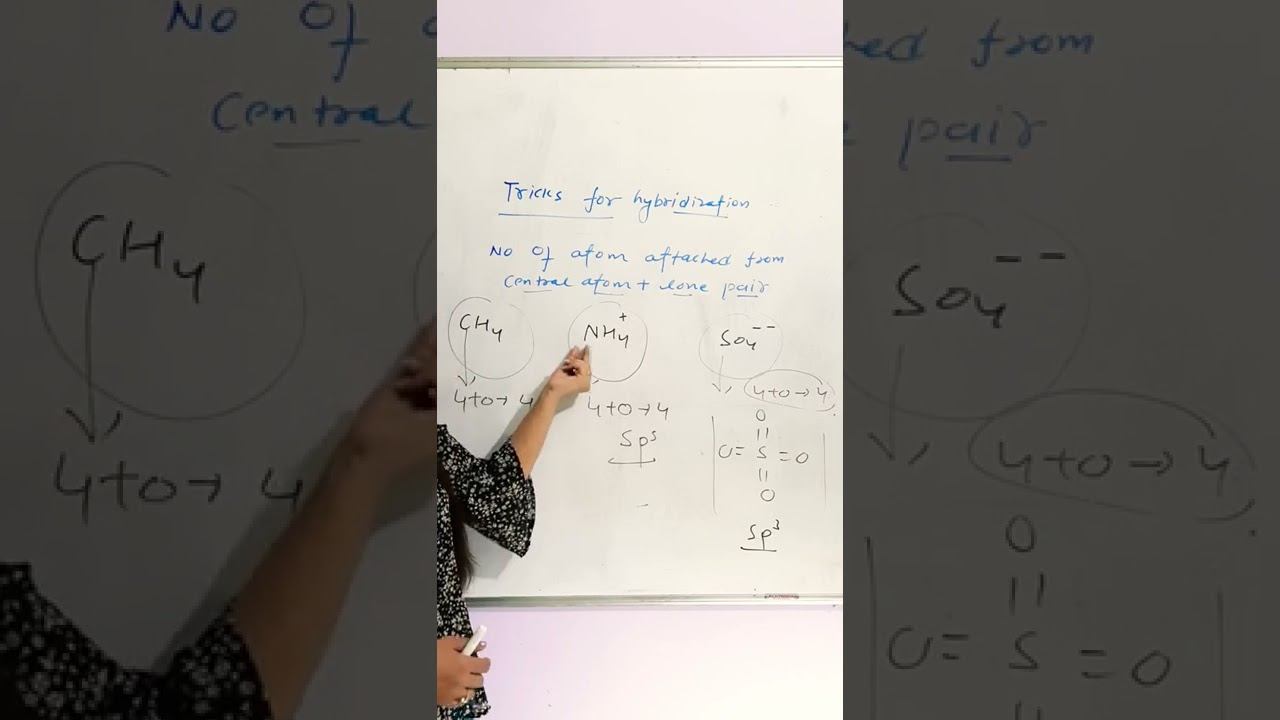 Tricks for hybridization
No Of atom attached from
central atom + lone pair
CH4 NH4+ SO4--
4+0→4 4+0→4 4+0→4
O
Sp3 ||
O= S =O
||
O
Sp3